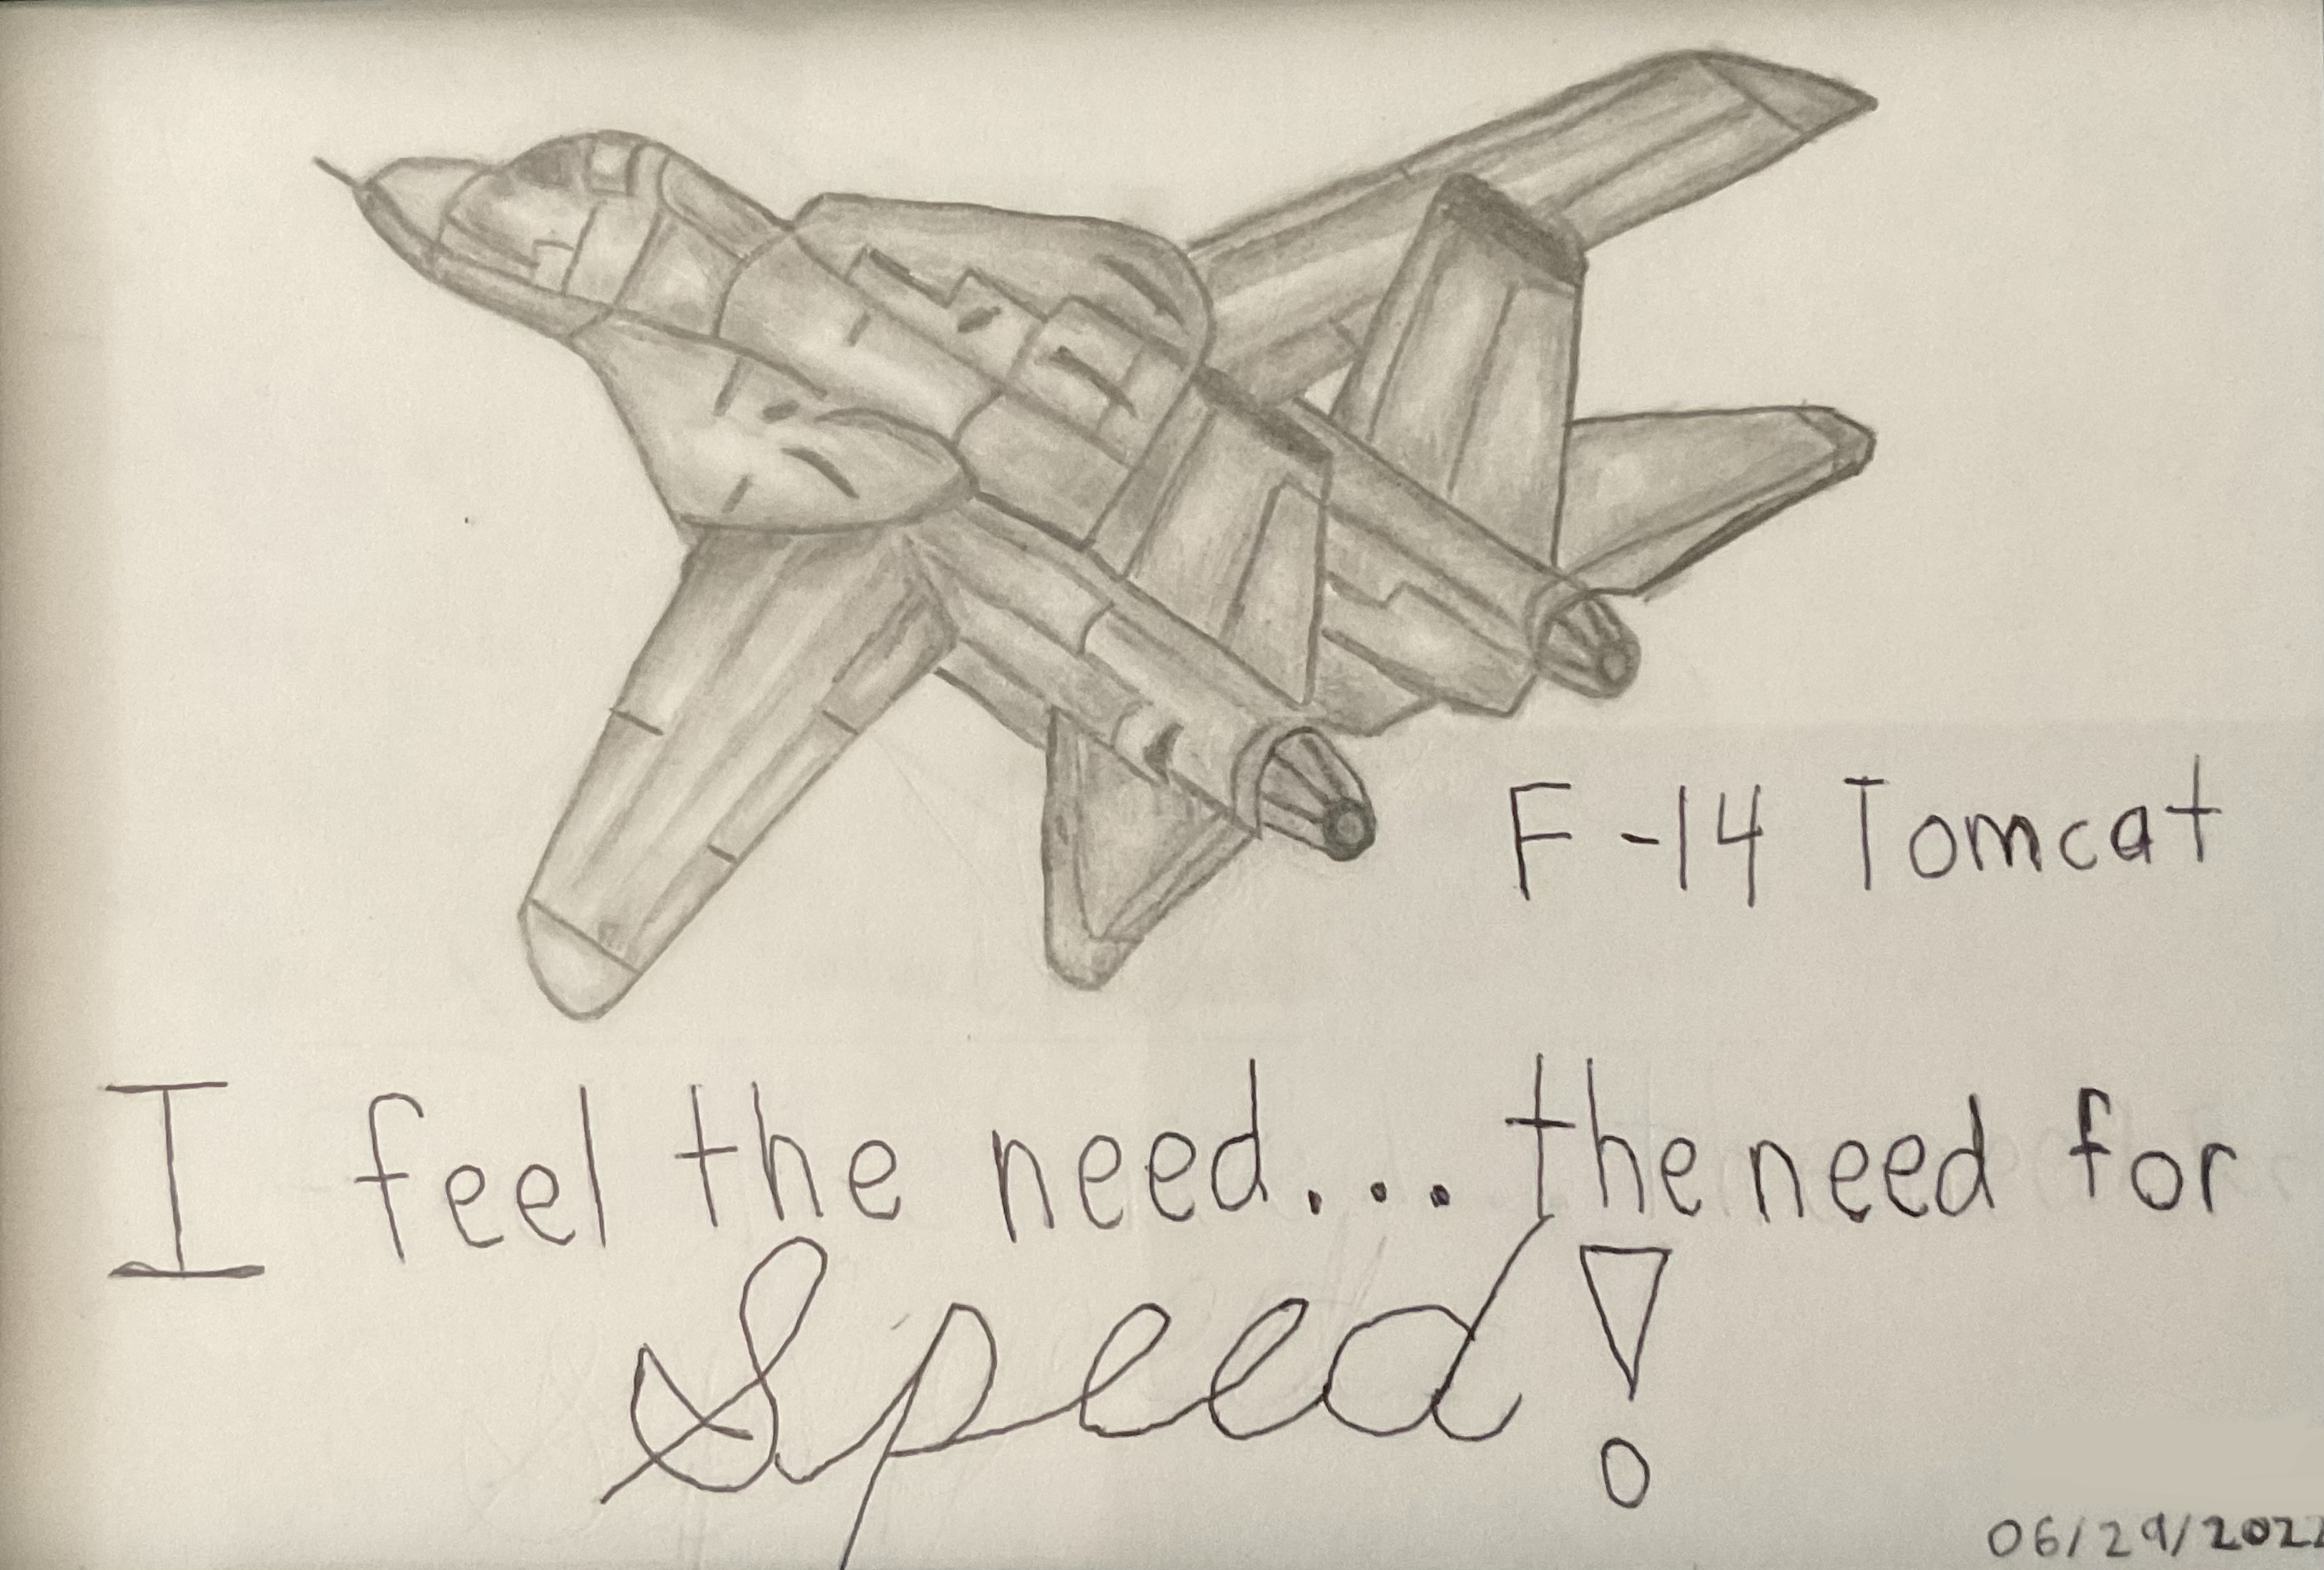 F-14 Tomcat
I feel the need... the need for
Speed!
06/29/2022